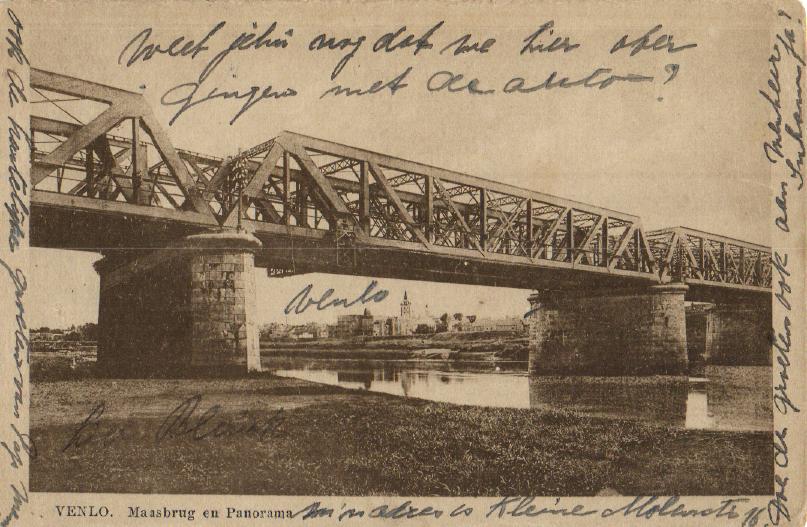 Weet jelui nog dat we hier over
gingen met de auto?
Venlo
hier Blerick
VENLO. Maasbrug en Panorama
mijn adres is Kleine Molenstr 16
ook de hartelijke groeten van
Doe de groeten ook aan Menheer